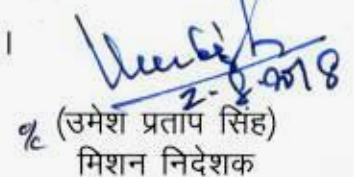 ।
2-8-2018
% (उमेश प्रताप सिंह)
मिशन निदेशक